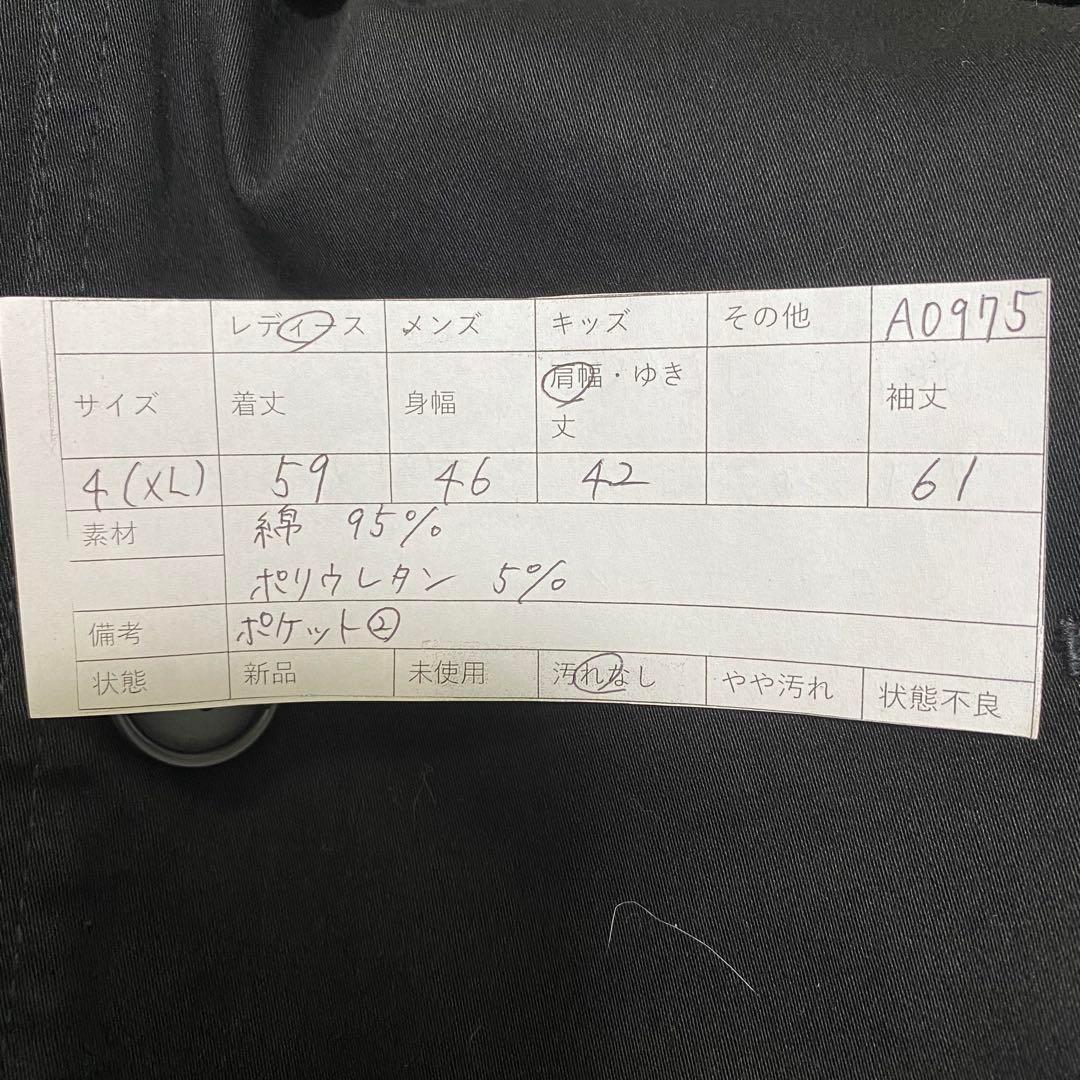 レディース メンズ キッズ その他 A0975
サイズ 着丈 身幅 肩幅・ゆき 袖丈
丈
4(XL) 59 46 42 61
素材 綿 95%
ポリウレタン 5%
備考 ポケット②
状態 新品 未使用 汚れなし やや汚れ 状態不良